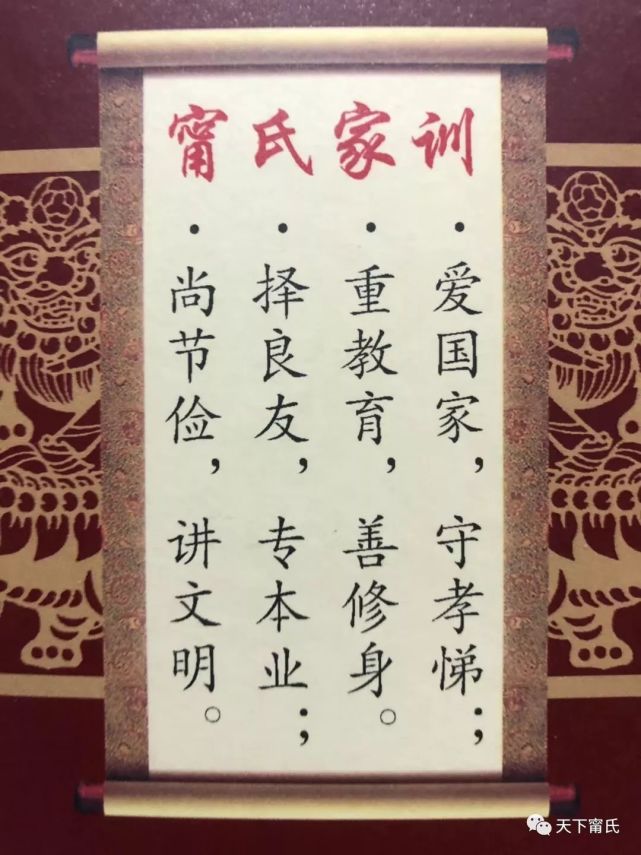 甯氏家训
·爱国家，守孝悌；
·重教育，善修身。
·择良友，专本业；
·尚节俭，讲文明。
天下甯氏